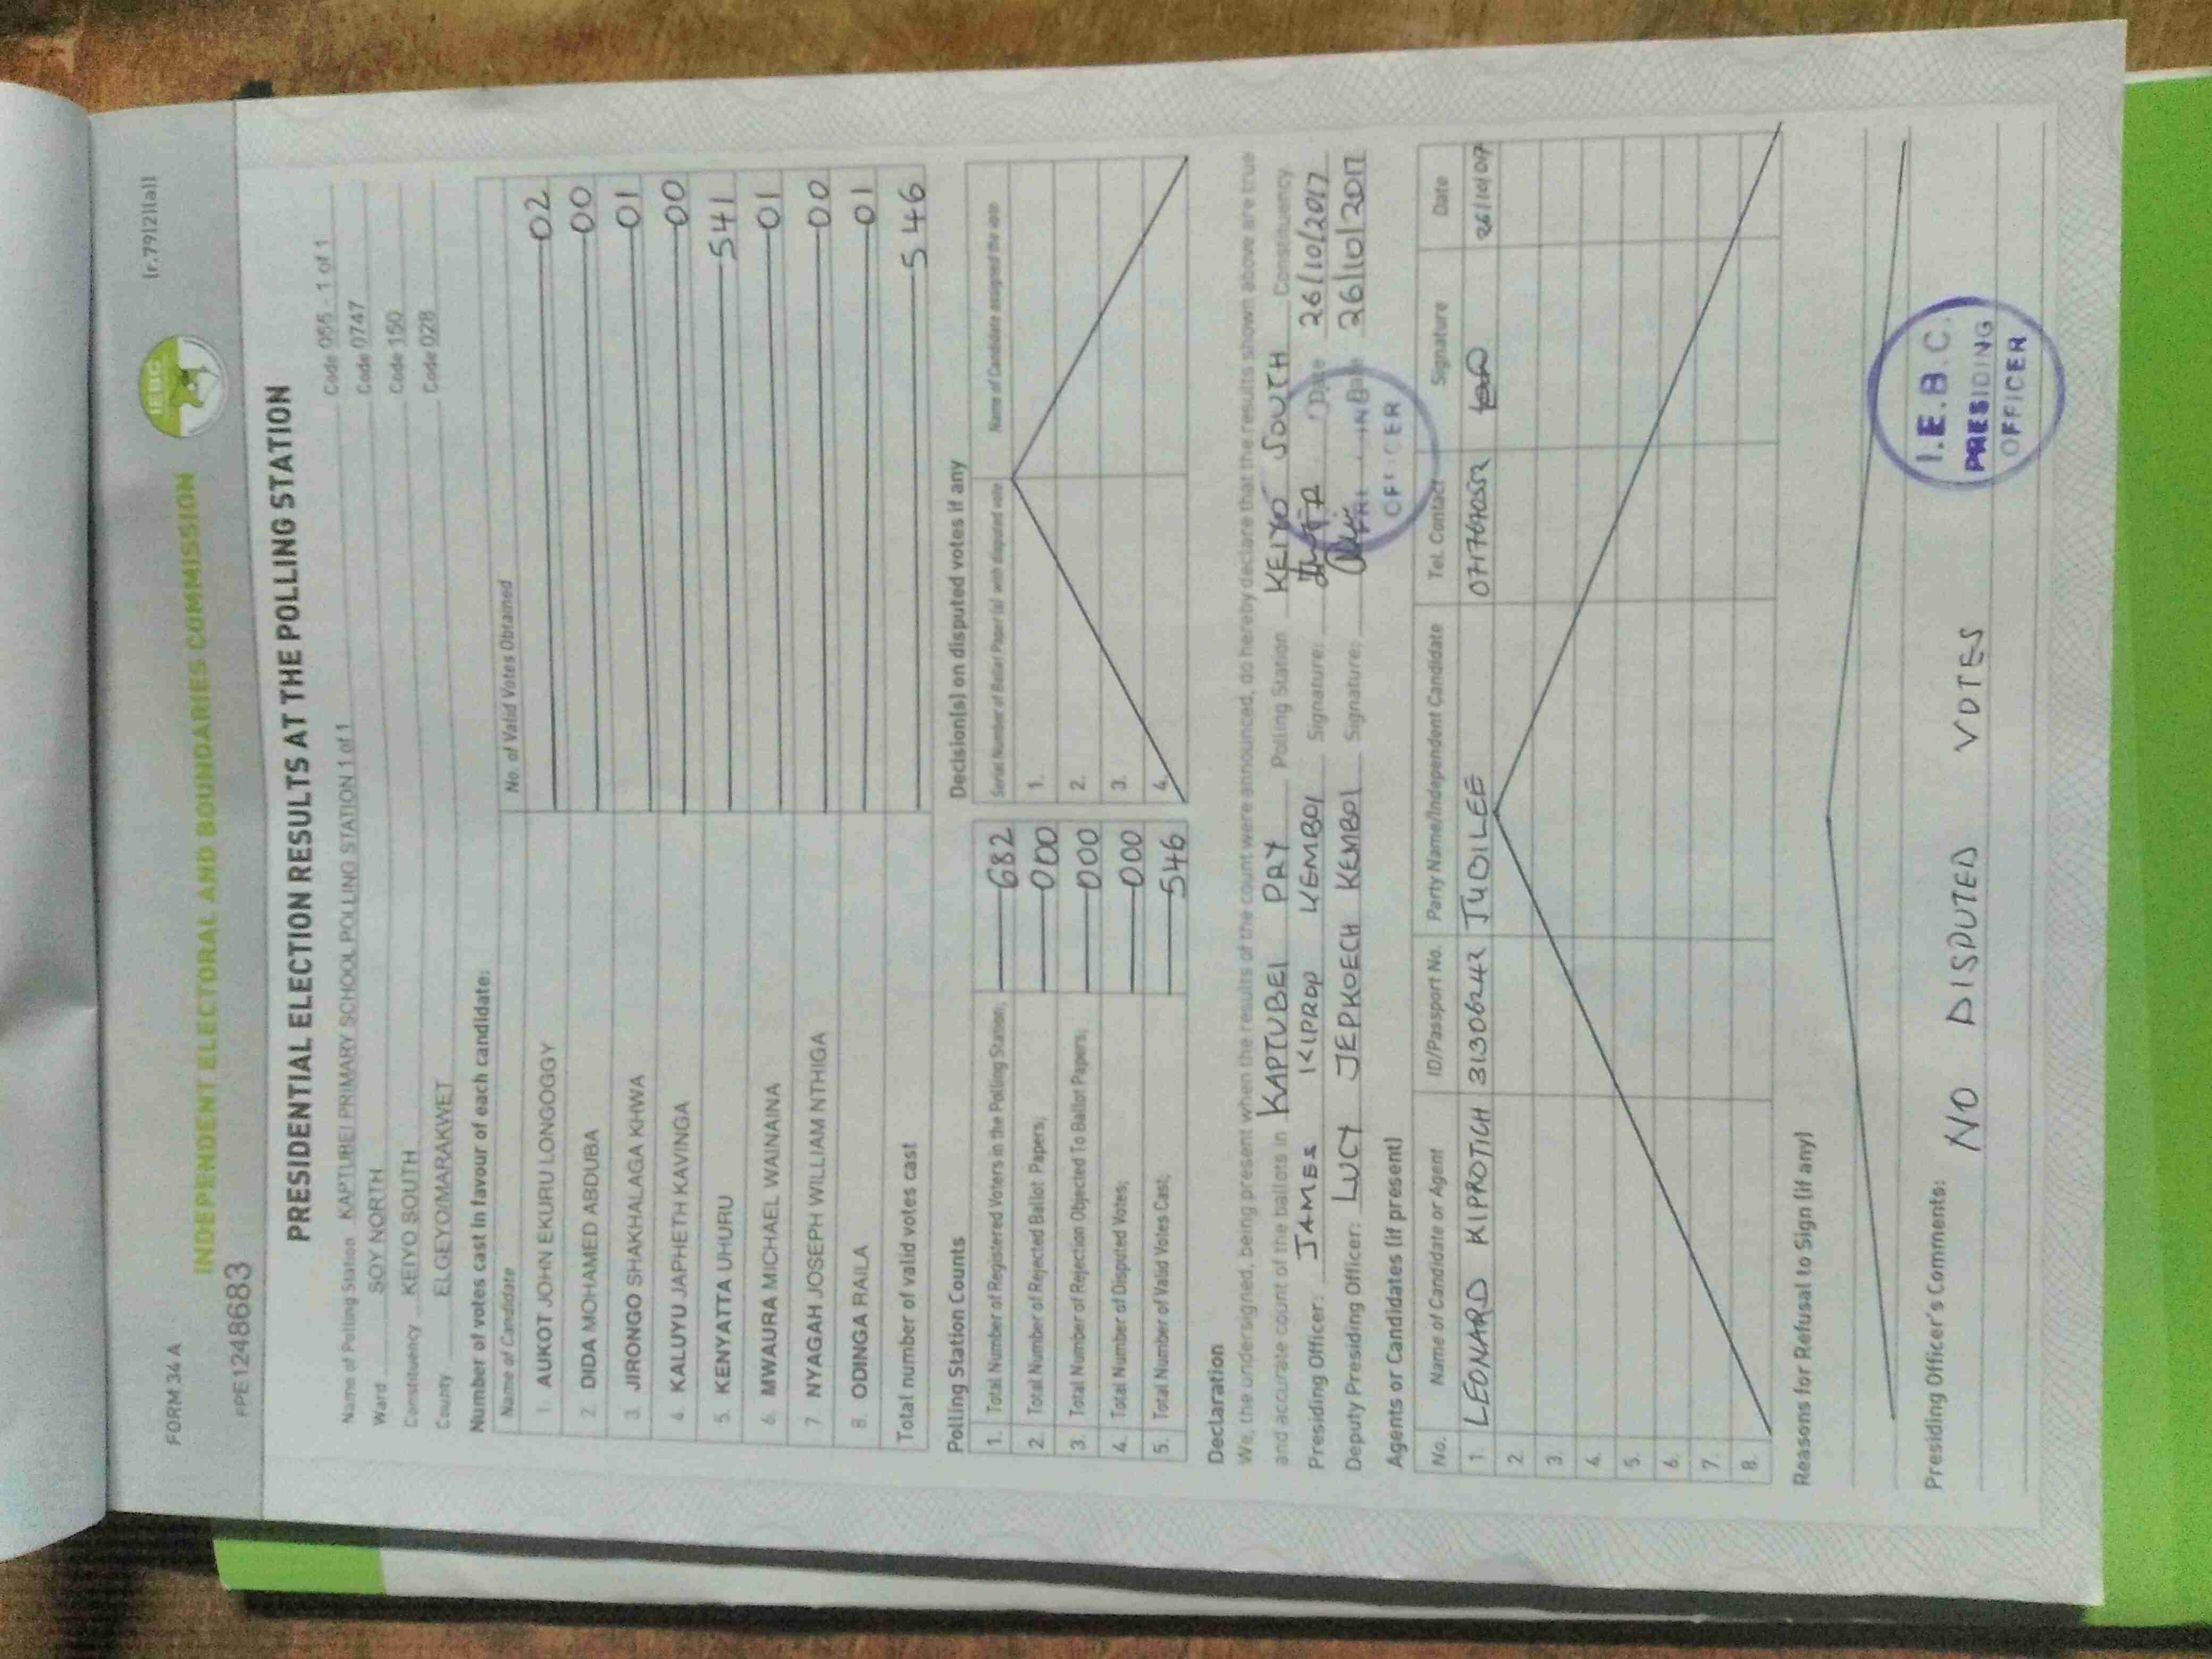 FORM 34 A
(r.79(2)(a))
IEBC
INDEPENDENT ELECTORAL AND BOUNDARIES COMMISSION
PPE1248683
PRESIDENTIAL ELECTION RESULTS AT THE POLLING STATION
Name of Polling Station KAPTUBEI PRIMARY SCHOOL POLLING STATION 1 of 1 Code 055 - 1 of 1
Ward SOY NORTH Code 0747
Constituency KEIYO SOUTH Code 150
County ELGEYO/MARAKWET Code 028
Number of votes cast in favour of each candidate:
Name of Candidate No. of Valid Votes Obtained
1. AUKOT JOHN EKURU LONGOGGY 02
2. DIDA MOHAMED ABDUBA 00
3. JIRONGO SHAKHALAGA KHWA 01
4. KALUYU JAPHETH KAVINGA 00
5. KENYATTA UHURU 541
6. MWAURA MICHAEL WAINAINA 01
7. NYAGAH JOSEPH WILLIAM NTHIGA 00
8. ODINGA RAILA 01
Total number of valid votes cast 546
Polling Station Counts
1. Total Number of Registered Voters in the Polling Station; 682
2. Total Number of Rejected Ballot Papers; 000
3. Total Number of Rejection Objected To Ballot Papers; 000
4. Total Number of Disputed Votes; 000
5. Total Number of Valid Votes Cast; 546
Decision(s) on disputed votes if any
Serial Number of Ballot Paper (s) with disputed vote Name of Candidate assigned the vote
1.
2.
3.
4.
Declaration
We, the undersigned, being present when the results of the count were announced, do hereby declare that the results shown above are true
and accurate count of the ballots in KAPTUBEI PRY Polling Station KEIYO SOUTH Constituency.
Presiding Officer: JAMES KIPROP KEMBOI Signature: Date 26/10/2017
Deputy Presiding Officer: LUCY JEPKOECH KEMBOI Signature: Date 26/10/2017
OFFICER
Agents or Candidates (if present)
No. Name of Candidate or Agent ID/Passport No. Party Name/Independent Candidate Tel. Contact Signature Date
1. LEONARD KIPROTICH 31306242 JUBILEE 0717670552
2.
3.
4.
5.
6.
7.
8.
Reasons for Refusal to Sign (if any)
Presiding Officer's Comments:
NO DISPUTED VOTES
I.E.B.C.
PRESIDING
OFFICER